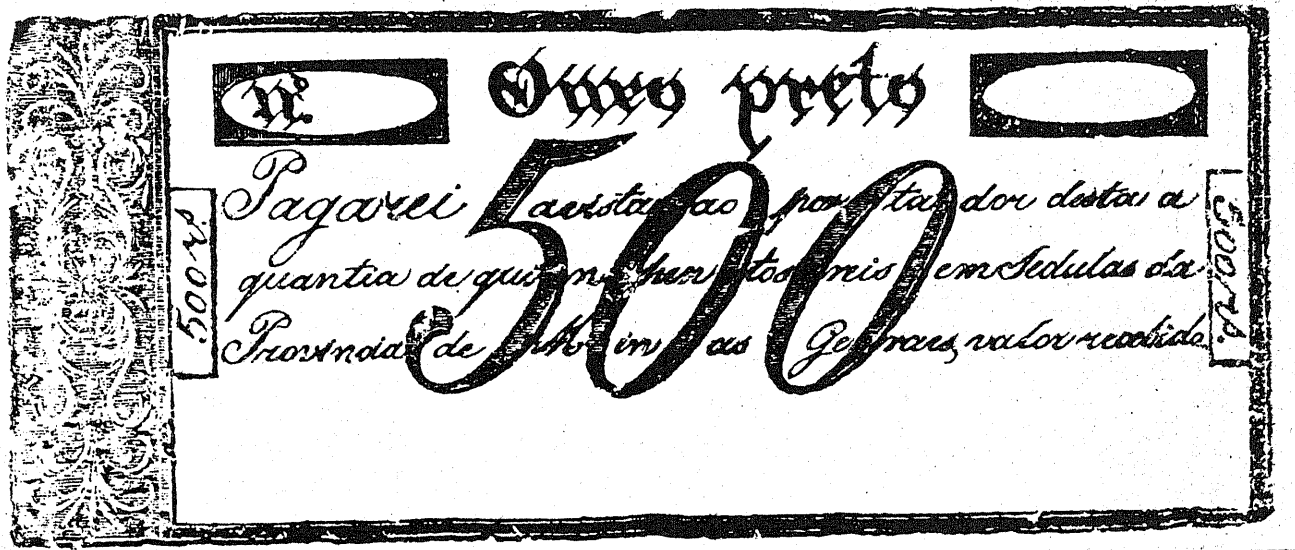 Nº. Ouro preto
500
Pagarei avista ao portador desta a
quantia de quinhentos reis em Sedulas da
Provincia de Minas Geraes, valor recebido
500 rs.
500 rs.